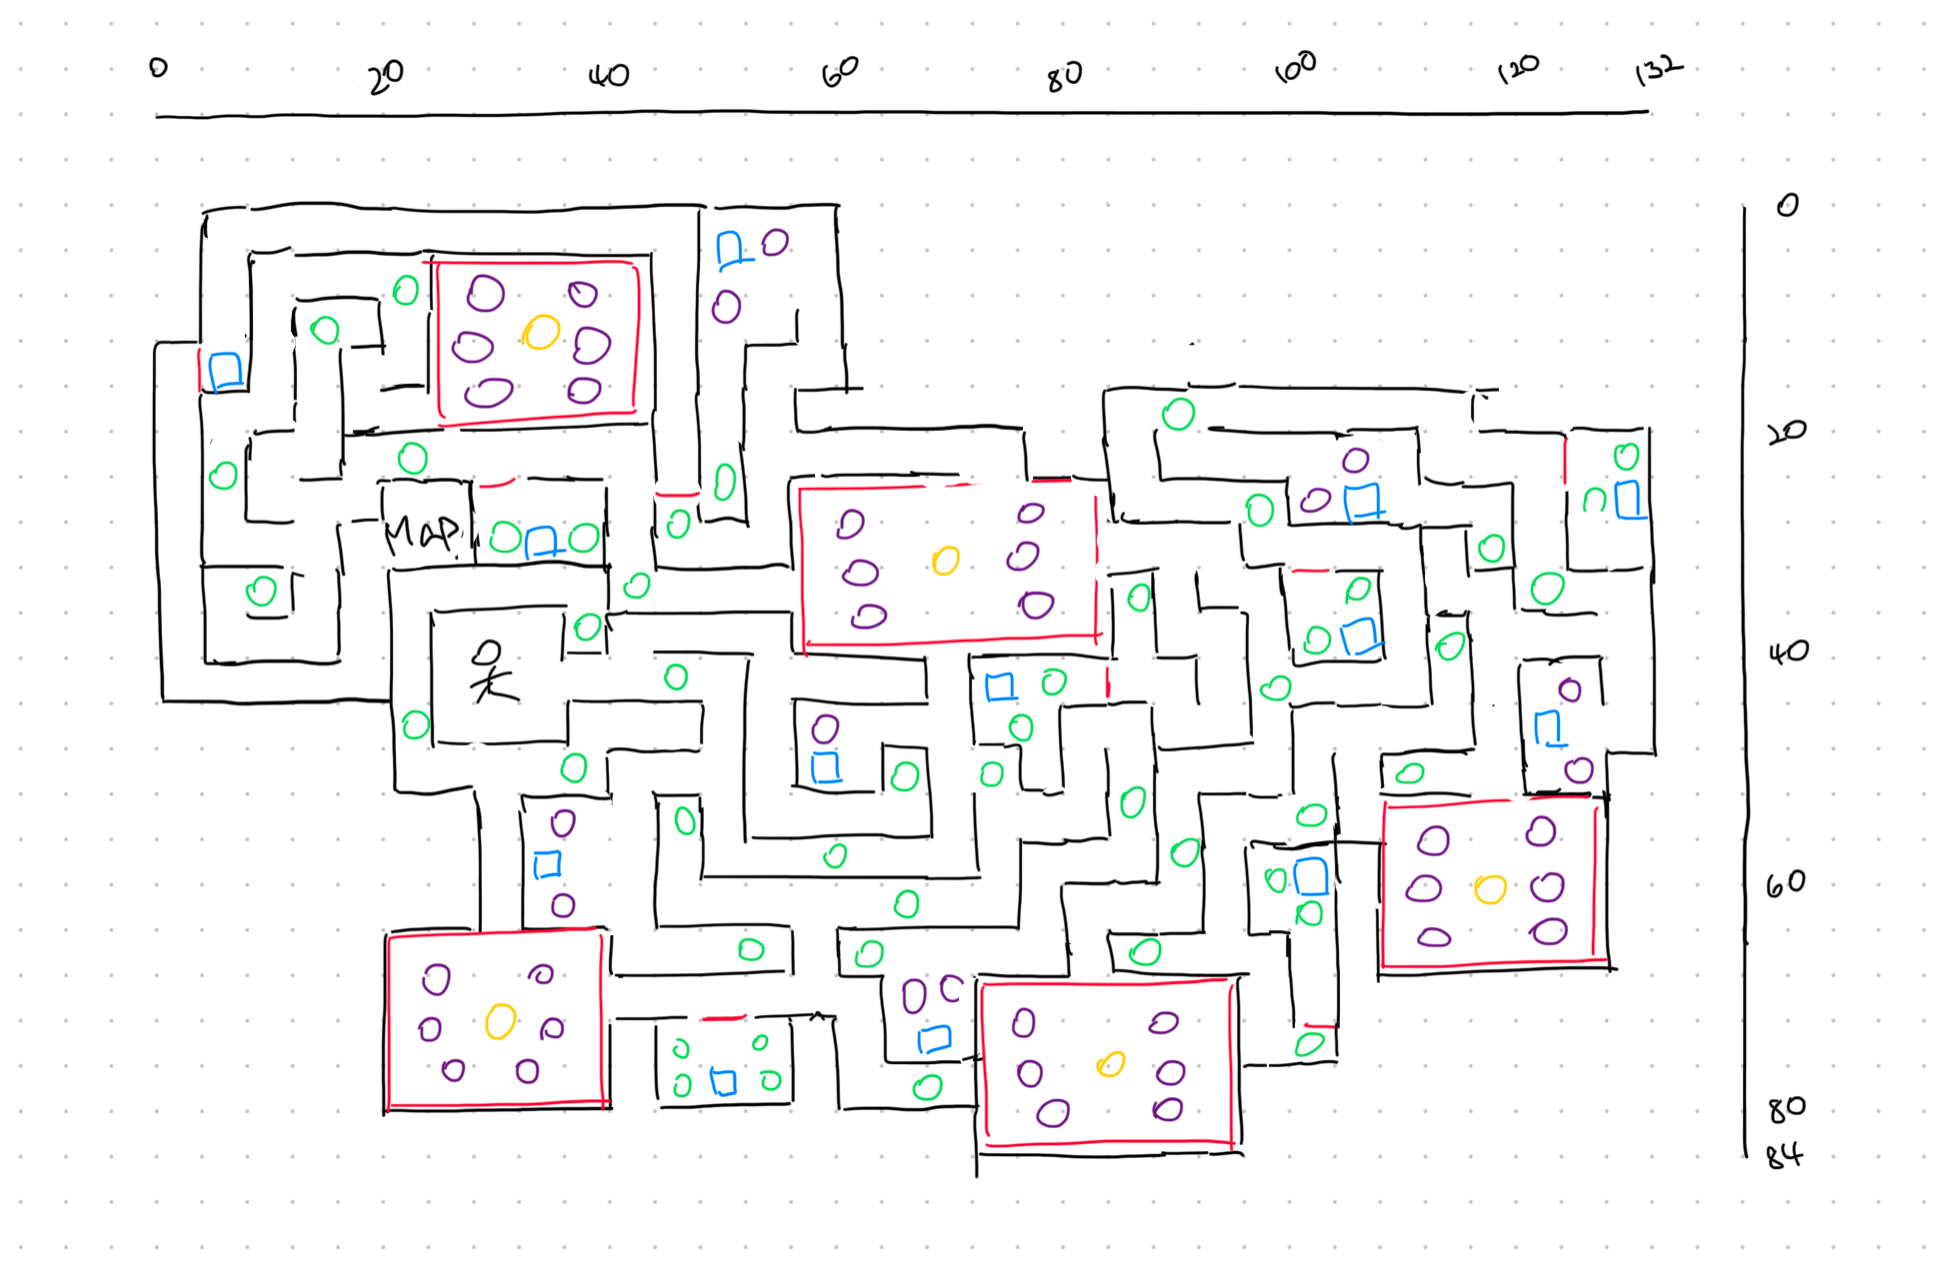 0 20 40 60 80 100 120 132
0
20
MAP
40
60
80
84